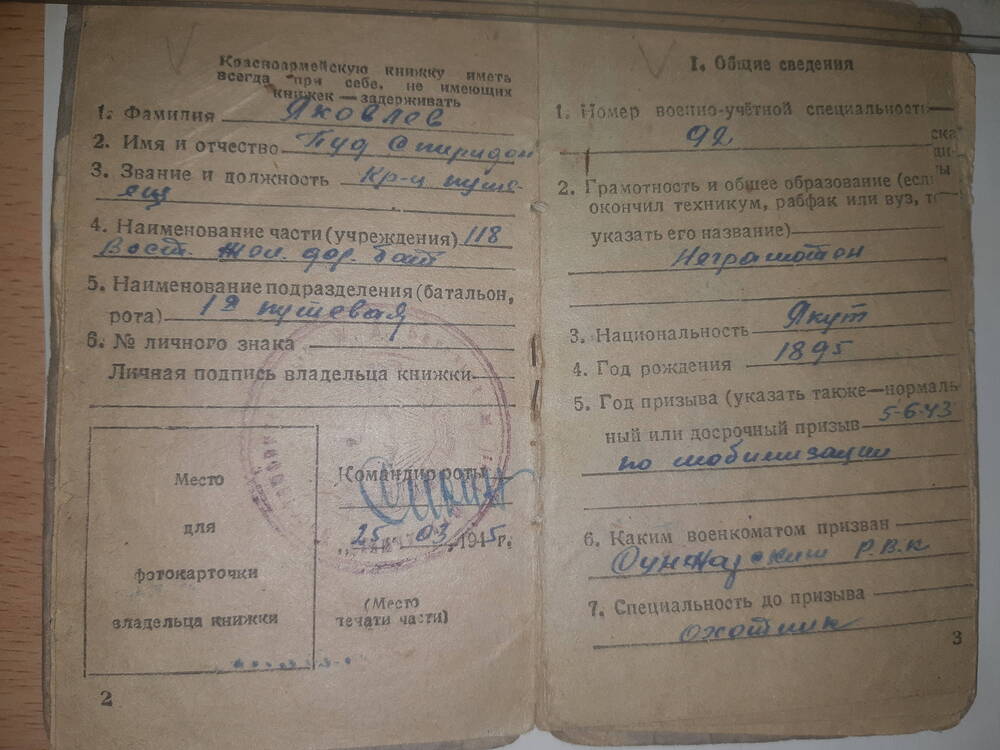 Красноармейскую книжку иметь
всегда при себе, не имеющих
книжек — задерживать
1. Фамилия Яковлев
2. Имя и отчество Пуд Спиридон
3. Звание и должность кр-ц путе-
ец
4. Наименование части (учреждения) 118
Вост. жол. дор. бат
5. Наименование подразделения (батальон,
рота) 1я путевая
6. № личного знака
Личная подпись владельца книжки
Место
для
фотокарточки
владельца книжки
Командир роты
„25" 03 1945г.
(Место
печати части)
2
I. Общие сведения
1. Номер военно-учётной специальность
92
2. Грамотность и общее образование (если
окончил техникум, рабфак или вуз, то
указать его название)
Неграмотон
3. Национальность Якут
4. Год рождения 1895
5. Год призыва (указать также—нормаль-
ный или досрочный призыв 5-6-43
по мобилизации
6. Каким военкоматом призван
Сунтарским Р.В.К
7. Специальность до призыва
охотник
3